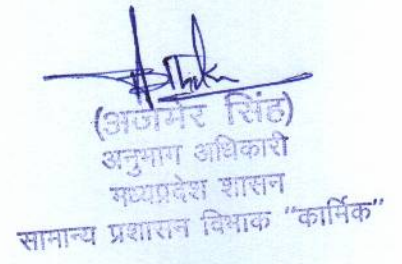 (अजमेर सिंह)
अनुभाग अधिकारी
मध्यप्रदेश शासन
सामान्य प्रशासन विभाक "कार्मिक"